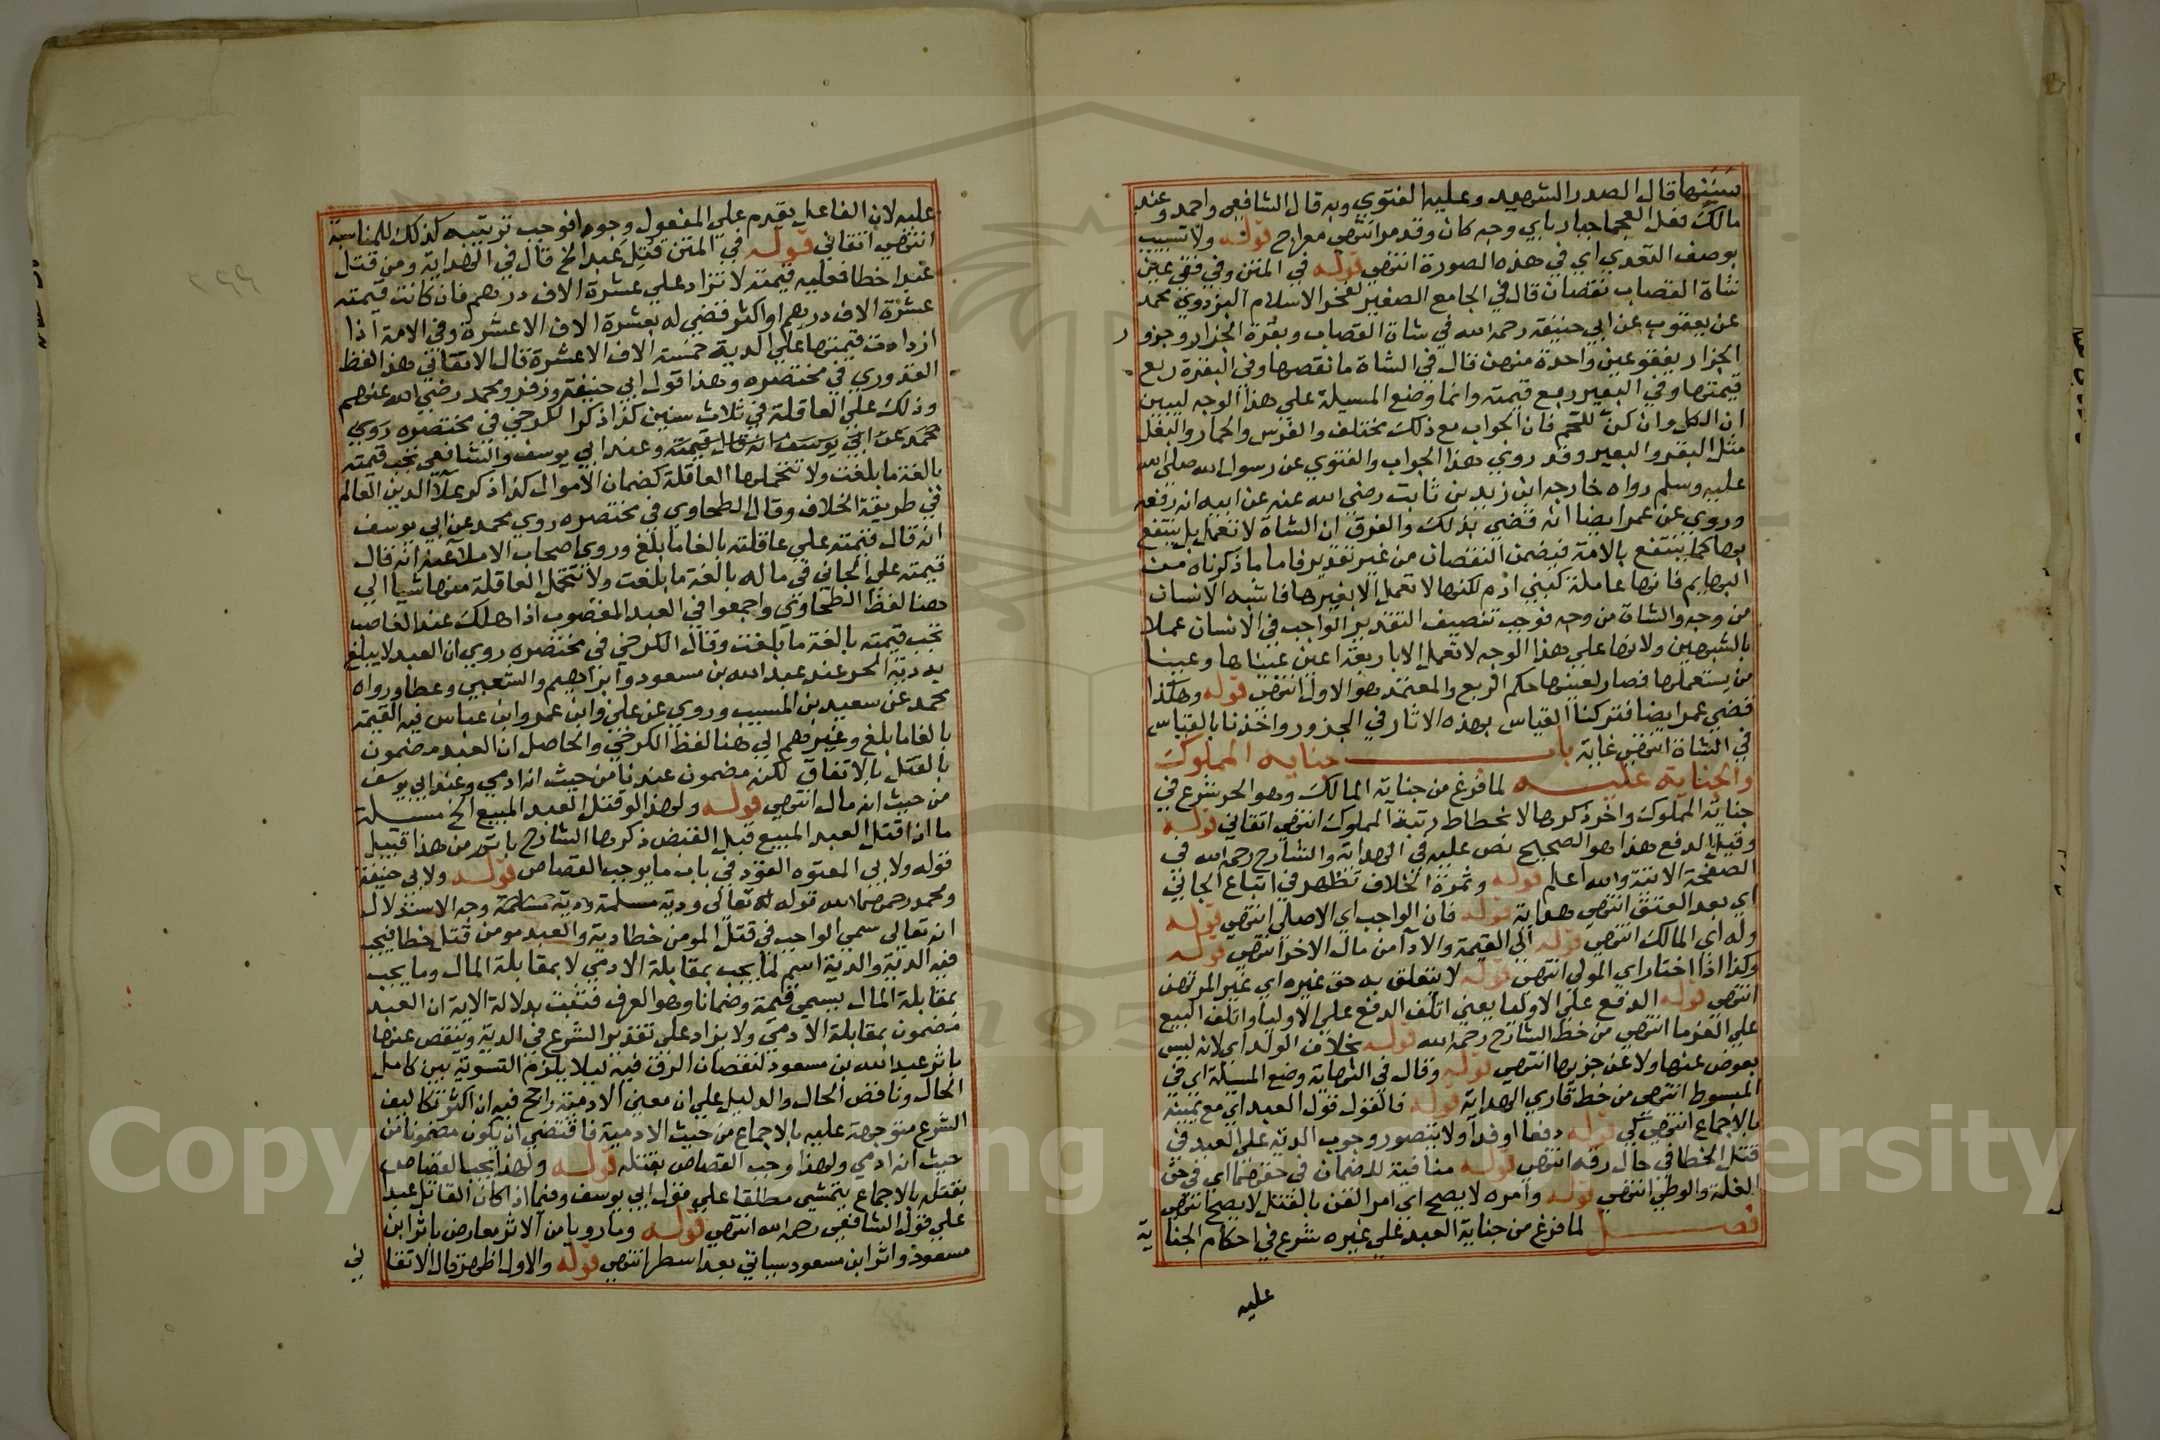 سببها قال الصدر الشهيد وعليه الفتوي وبه قال الشافعي واحمد وعند
مالك فعل العجما جبار باي وجه كان وقد مر انتهي معراج قوله ولا تسبيب
بوصف التعدي اي في هذه الصورة انتهي قوله في المتن وفي فقئ عين
شاة القصاب نقصان قال في الجامع الصغير لفخر الاسلام البزدوي محمد
عن يعقوب عن ابي حنيفة رحمه الله في شاة القصاب وبقرة الجزار وجزور
الجزار يفقؤ عين واحدة منهن قال في الشاة ما نقصها وفي البقرة ربع
قيمتها وفي البعير ربع قيمته وانما وضع المسيلة علي هذا الوجه ليبين
ان الكل وان كن للحم فان الجواب مع ذلك مختلف والفرس والحمار والبغل
مثل البقر والبعير وقد روي هذا الجواب والفتوي عن رسول الله صلي الله
عليه وسلم رواه خارجه ابن زيد بن ثابت رضي الله عنه عن ابيه انه رفعه
وروي عن عمر ايضا انه قضي بذلك والفرق ان الشاة لا تعمل بل ينتفع
بها كما ينتفع بالامة فيضمن النقصان من غير تقدير فاما ما ذكرناه من
البهايم فانها عاملة كبني ادم لكنها لا تعمل الا بغيرها فاشبه الانسان
من وجه والشاة من وجه فوجب تنصيف التقدير الواجب في الانسان عملا
بالشبهين ولانها علي هذا الوجه لا تعمل الا باربعة اعين عيناها وعينا
من يستعملها فصار لعينها حكم الربع والمعتمد هو الاول انتهي قوله وهكذا
قضي عمر ايضا فتركنا القياس بهذه الاثار في الجذور واخذنا بالقياس
في الشاة انتهي غاية باب جناية المملوك
والجناية عليه لما فرغ من جناية المالك وهو الحر شرع في
جناية المملوك واخر ذكرها لانحطاط رتبة المملوك انتهي اتقاني قوله
وقيل الدفع هذا هو الصحيح نص عليه في الهداية والشارح رحمه الله في
الصفحة الاتية والله اعلم قوله وثمرة الخلاف تظهر في اتباع الجاني
اي بعد العتق انتهي هداية قوله فان الواجب اي الاصلي انتهي قوله
وله اي المالك انتهي قوله الي القيمة والادآ من مال الاخر انتهي قوله
وكذا اذا اختار اي المولي انتهي قوله لا يتعلق به حق غيره اي غير المرتهن
انتهي قوله الدفع علي الاوليا يعني اتلف الدفع علي الاوليا واتلف البيع
علي الغرما انتهي من خط الشارح رحمه الله قوله بخلاف الولد اي لانه ليس
بعوض عنها ولا عن جزيها انتهي قوله وقال في النهاية وضع المسئلة اي في
المبسوط انتهي من خط قاري الهداية قوله فالقول قول العبد اي مع يمينه
بالاجماع انتهي قوله دفعا او فدآ ولا يتصور وجوب الدية علي العبد في
قتل الخطا في حال رقه انتهي قوله منافية للضمان في حقهما اي في حق
الغلة والوطي انتهي قوله وامره لا يصح اي امر القن بالقتل لا يصح انتهي
فصل لما فرغ من جناية العبد علي غيره شرع في احكام الجناية
عليه
عليه لان الفاعل يقدم علي المفعول وجودا فوجب ترتيبه كذلك للمناسبة
انتهي اتقاني قوله في المتن قتل عبد الخ قال في الهداية ومن قتل
عبدا خطا فعليه قيمته لا تزاد علي عشرة الاف درهم فان كانت قيمته
عشرة الاف درهم او اكثر قضي له بعشرة الاف الا عشرة وفي الامة اذا
ازدادت قيمتها علي الدية خمسة الاف الا عشرة قال الاتقاني هذا لفظ
القدوري في مختصره وهذا قول ابي حنيفة وزفر ومحمد رضي الله عنهم
وذلك علي العاقلة في ثلاث سنين كذا ذكر الكرخي في مختصره روي
محمد عن ابي يوسف انه قال قيمته وعند ابي يوسف والشافعي تجب قيمته
بالغة ما بلغت ولا تتحملها العاقلة كضمان الاموال كذا ذكر علاء الدين العالم
في طريقة الخلاف وقال الطحاوي في مختصره روي محمد عن ابي يوسف
انه قال قيمته علي عاقلته بالغا ما بلغ وروي اصحاب الاملا عنه انه قال
قيمته علي الجاني في ماله بالغة ما بلغت ولا تتحمل العاقلة منها شيا الي
هنا لفظ الطحاوي واجمعوا في العبد المغصوب اذا هلك عند الغاصب
تجب قيمته بالغة ما بلغت وقال الكرخي في مختصره روي ان العبد لا يبلغ
به دية الحر عند عبد الله بن مسعود وابراهيم والشعبي وعطا ورواه
محمد عن سعيد بن المسيب وروي عن علي وابن عمر وابن عباس فيه القيمة
بالغا ما بلغ وغيرهم الي هنا لفظ الكرخي والحاصل ان العبد مضمون
بالقتل بالاتفاق لكنه مضمون عندنا من حيث انه ادمي وعند ابي يوسف
من حيث انه مال انتهي قوله ولهذا لو قتل العبد المبيع الخ مسيلة
ما اذا قتل العبد المبيع قبل القبض ذكرها الشارح باتم من هذا قبيل
قوله ولابي المعتوه القود في باب ما يوجب القصاص قوله ولابي حنيفة
ومحمد رحمهما الله قوله تعالي ودية مسلمة وجه الاستدلال
انه تعالي سمي الواجب في قتل المومن خطا دية والعبد مومن قتل خطا فيجب
فيه الدية والدية اسم لما يجب بمقابلة الادمي لا بمقابلة المال وما يجب
بمقابلة المال يسمي قيمة وضمانا وهو العرف فثبت بدلالة الاية ان العبد
مضمون بمقابلة الادمي ولا يزاد علي تقدير الشرع في الدية وينقص عنها
باثر عبد الله بن مسعود لنقصان الرق فيه ليلا يلزم التسوية بين كامل
الحال وناقض الحال والدليل علي ان معني الادمية راجح فيه ان اكثر تكاليف
الشرع متوجهة عليه بالاجماع من حيث الادمية فاقتضي ان يكون مضمونا من
حيث انه ادمي ولهذا وجب القصاص بقتله قوله ولهذا يجب القصاص
بقتله بالاجماع يتمشي مطلقا علي قول ابي يوسف وفيما اذا كان القاتل عبدا
علي قول الشافعي رحمه الله انتهي قوله وما رويا من الاثر معارض باثر ابن
مسعود واثر ابن مسعود سياتي بعد اسطر انتهي قوله والاول اظهر قال الاتقا
ني